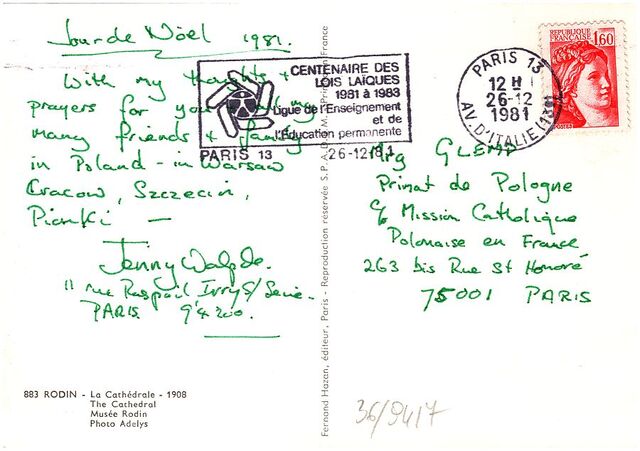 Jour de Nöel 1981.
With my thoughts +
prayers for you
many friends + family
in Poland - in Warsaw
Cracow, Szczecin,
Pionki —
Jenny
11 rue Raspail Ivry s/ Seine.
PARIS. 94200.
883 RODIN - La Cathédrale - 1908
The Cathedral
Musée Rodin
Photo Adelys
CENTENAIRE DES
LOIS LAÏQUES
1981 à 1983
Ligue de l'Enseignement
et de
l'Éducation permanente
PARIS 13 26-12 1981
Fernand Hazan, éditeur, Paris - Reproduction reservée S.P.A.D.E.M. France
PARIS 13
12 H
26-12
1981
AV. D'ITALIE (13e)
REPUBLIQUE
FRANÇAISE
1,60
POSTES
Mgr GLEMP
Primat de Pologne
c/o Mission Catholique
Polonaise en France
263 bis Rue St Honoré
75001 PARIS
36/9417